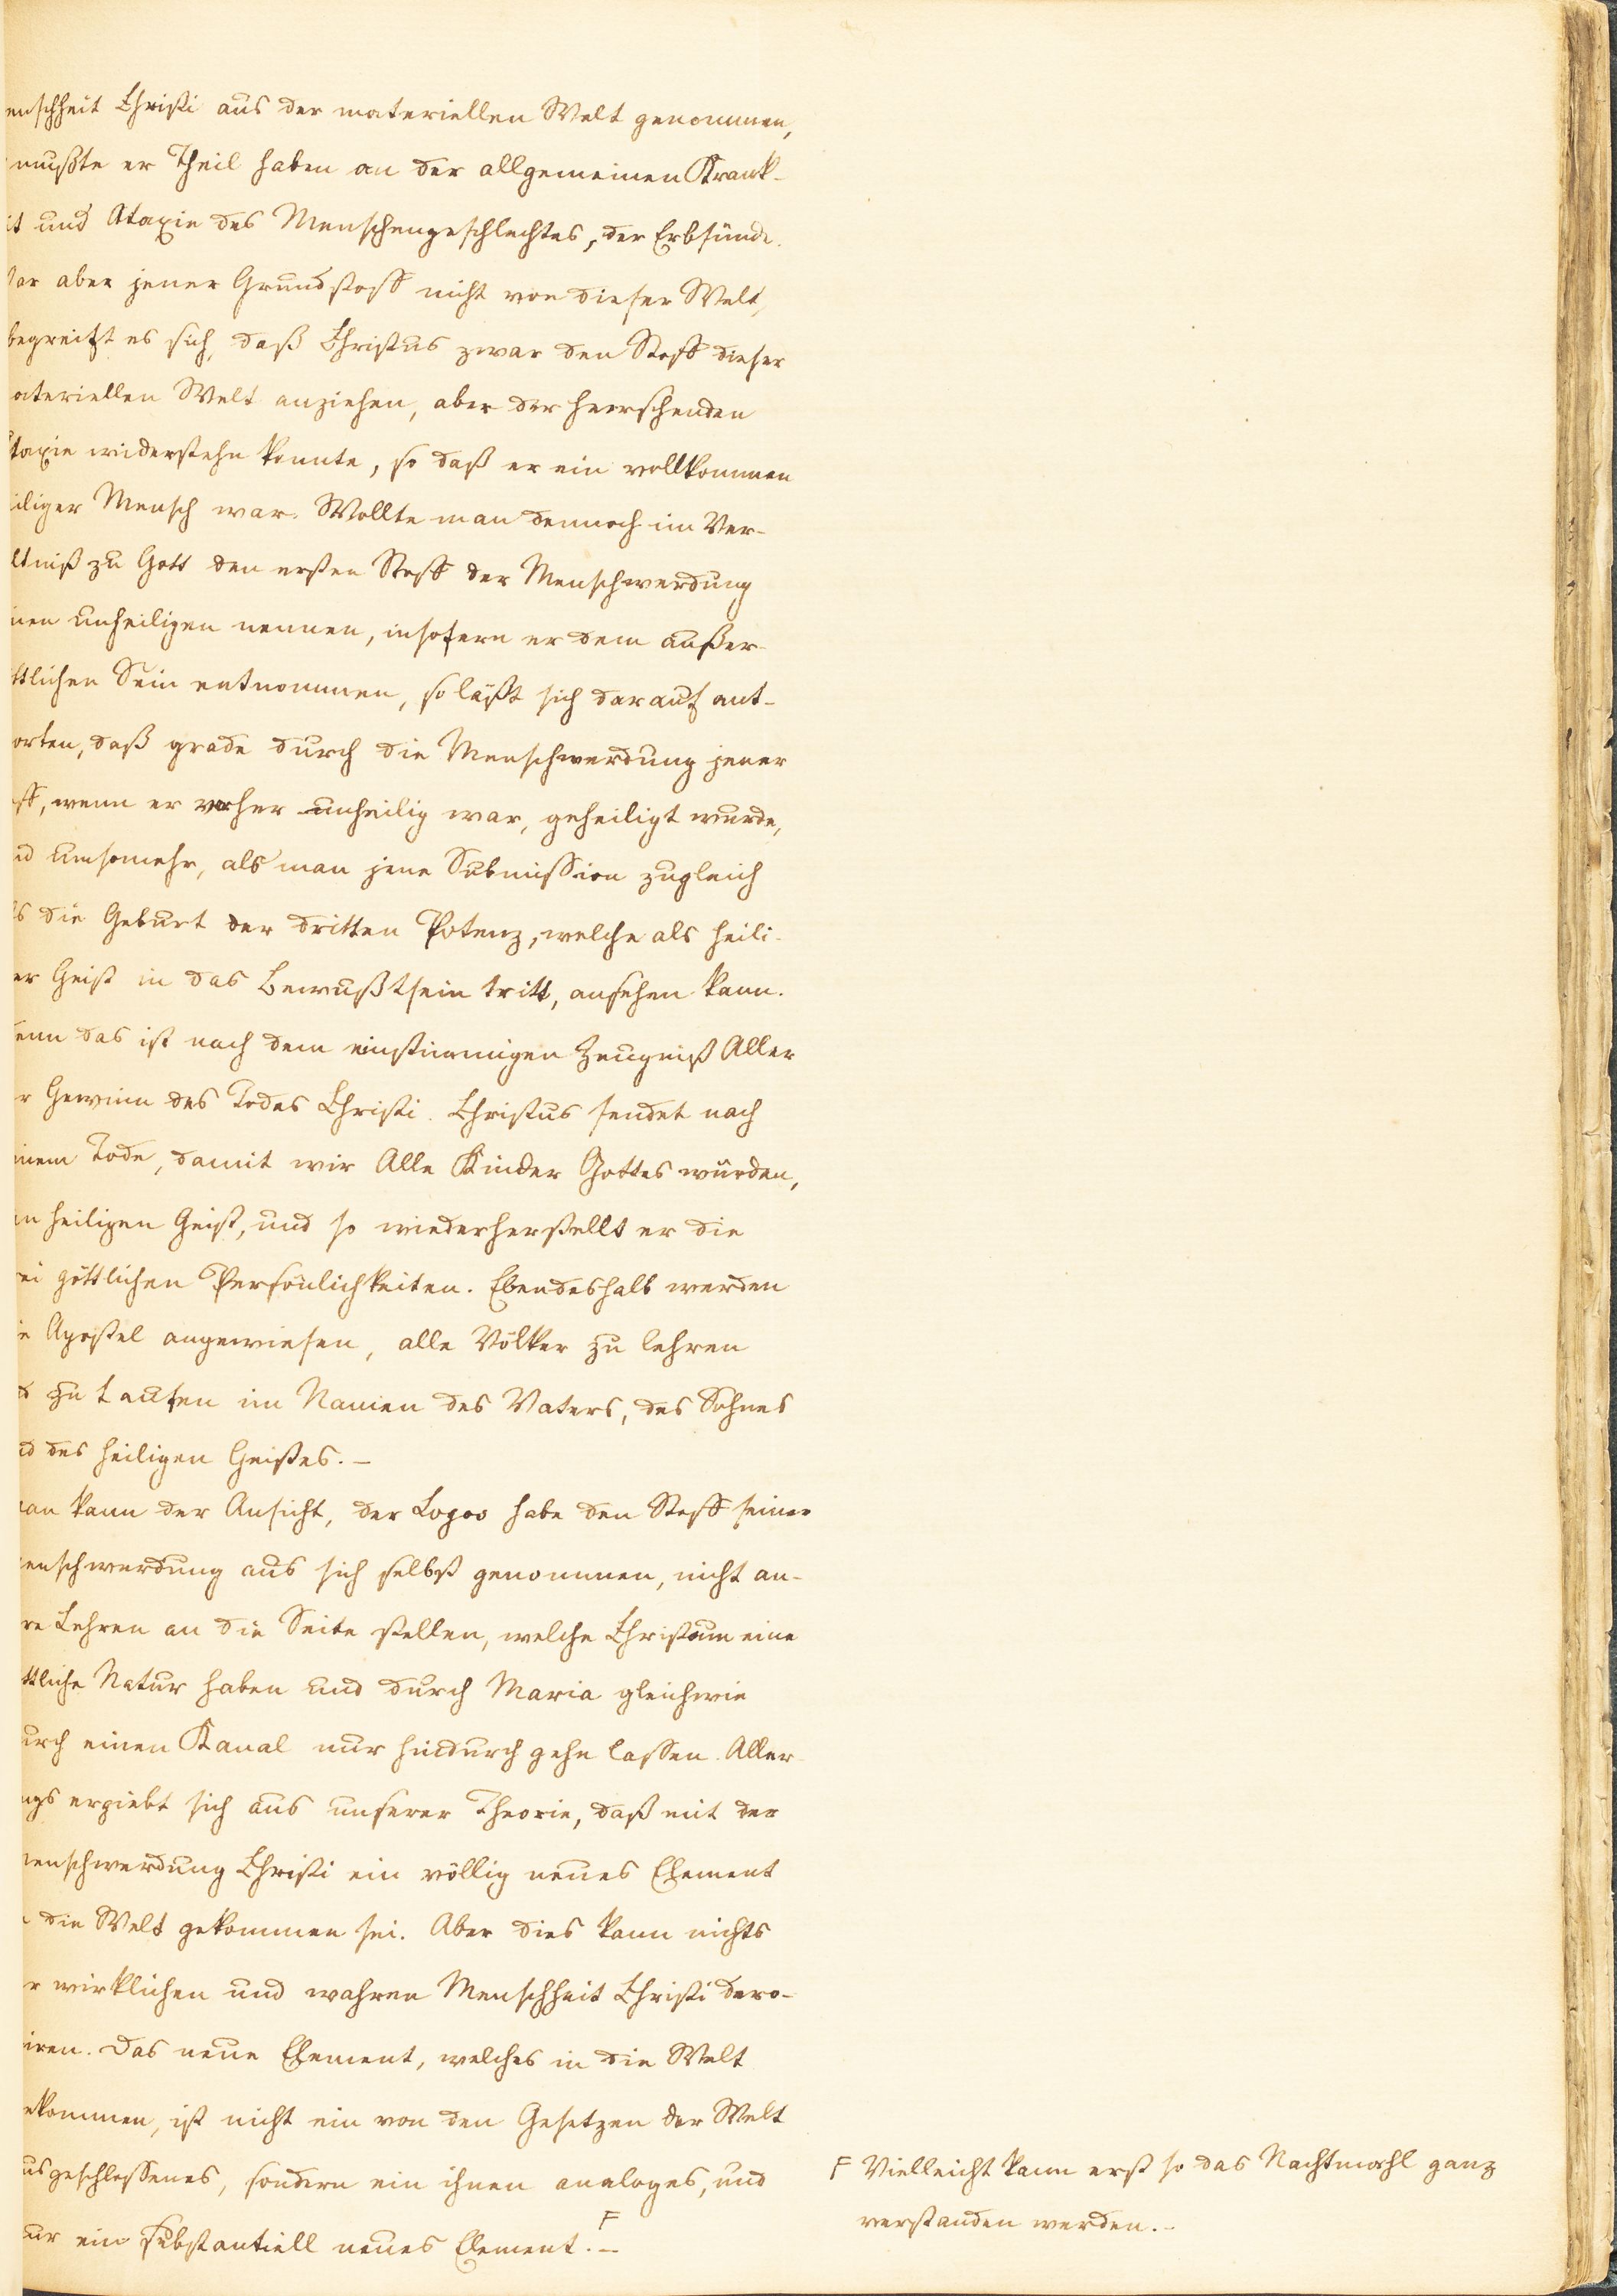 enschheit Christi aus der materiellen Welt genommen,
mußte er Theil haben an der allgemeinen Krank-
it und Ataxie des Menschengeschlechtes, der Erbsünde.
ar aber jener Grundstoff nicht von dieser Welt,
begreift es sich, daß Christus zwar den Stoff dieser
ateriellen Welt anziehen, aber der herrschenden
taxie widerstehn konnte, so daß er ein vollkommen
iliger Mensch war. Wollte man dennoch im Ver-
ltniß zu Gott den ersten Stoff der Menschwerdung
inen unheiligen nennen, insofern er dem außer-
ttlichen Sein entnommen, so läßt sich darauf ant-
orten, daß grade durch die Menschwerdung jener
ff, wenn er vorher unheilig war, geheiligt wurde,
nd umsomehr, als man jene Submission zugleich
ls die Geburt der dritten Potenz, welche als heili-
er Geist in das Bewußtsein tritt, ansehen kann.
enn das ist nach dem einstimmigen Zeugniß Aller
r Gewinn des Todes Christi. Christus sendet nach
inem Tode, damit wir Alle Kinder Gottes würden,
en heiligen Geist, und so wiederherstellt er die
ei göttlichen Persönlichkeiten. Ebendeshalb werden
ie Apostel angewiesen, alle Völker zu lehren
d zu taufen im Namen des Vaters, des Sohnes
nd des heiligen Geistes. –
an kann der Ansicht, der Logos habe den Stoff seiner
enschwerdung aus sich selbst genommen, nicht an-
re Lehren an die Seite stellen, welche Christum eine
ttliche Natur haben und durch Maria gleichwie
urch einen Kanal nur hindurch gehn lassen. Aller-
ngs ergiebt sich aus unserer Theorie, daß mit der
enschwerdung Christi ein völlig neues Element
n die Welt gekommen sei. Aber dies kann nichts
r wirklichen und wahren Menschheit Christi dero-
iren. Das neue Element, welches in die Welt
ekommen, ist nicht ein von den Gesetzen der Welt
usgeschlossenes, sondern ein ihnen analoges, und
ur ein substantiell neues Element. F –
F Vielleicht kann erst so das Nachtmahl ganz
verstanden werden. –